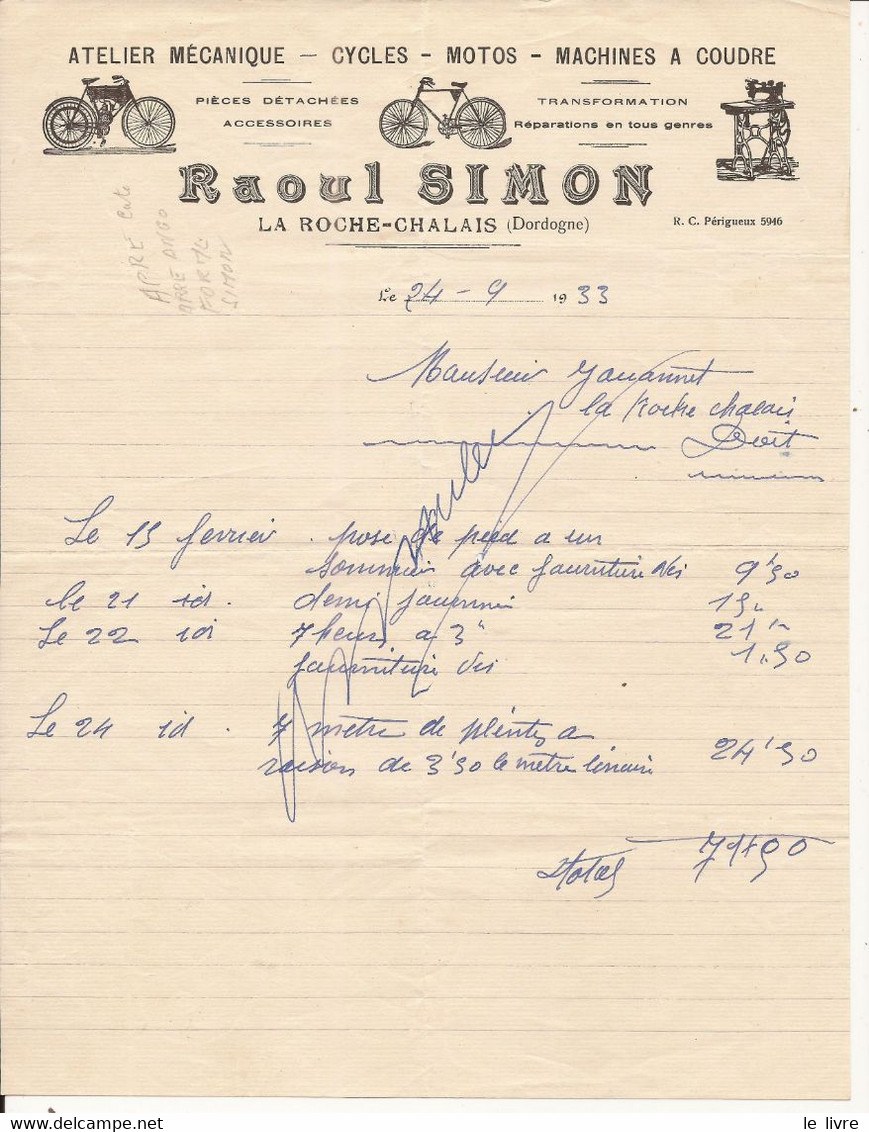 ATELIER MÉCANIQUE — CYCLES - MOTOS - MACHINES A COUDRE
PIÈCES DÉTACHÉES
ACCESSOIRES
TRANSFORMATION
Réparations en tous genres
Raoul SIMON
LA ROCHE-CHALAIS (Dordogne)
R. C. Périgueux 5946
SIMON
Le 24 - 9 1933
Monsieur Jouannet
la Roche chalais
Doit
Le 15 fevrier . pose de pied a un
sommier avec fourniture Vis 9'50
le 21 id . demi journée 15
Le 22 id 7 heures a 3" 21
fourniture Vis 1.50
Le 24 id . 7 metre de plintes a
raison de 3'50 le metre linaire 24'50
Total 71+50
le livre
Delcampe.net